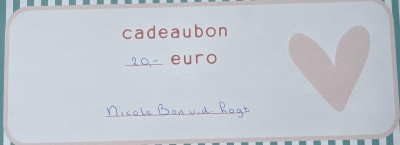 cadeaubon
20,- euro
Nicole Bon v.d. Hogt